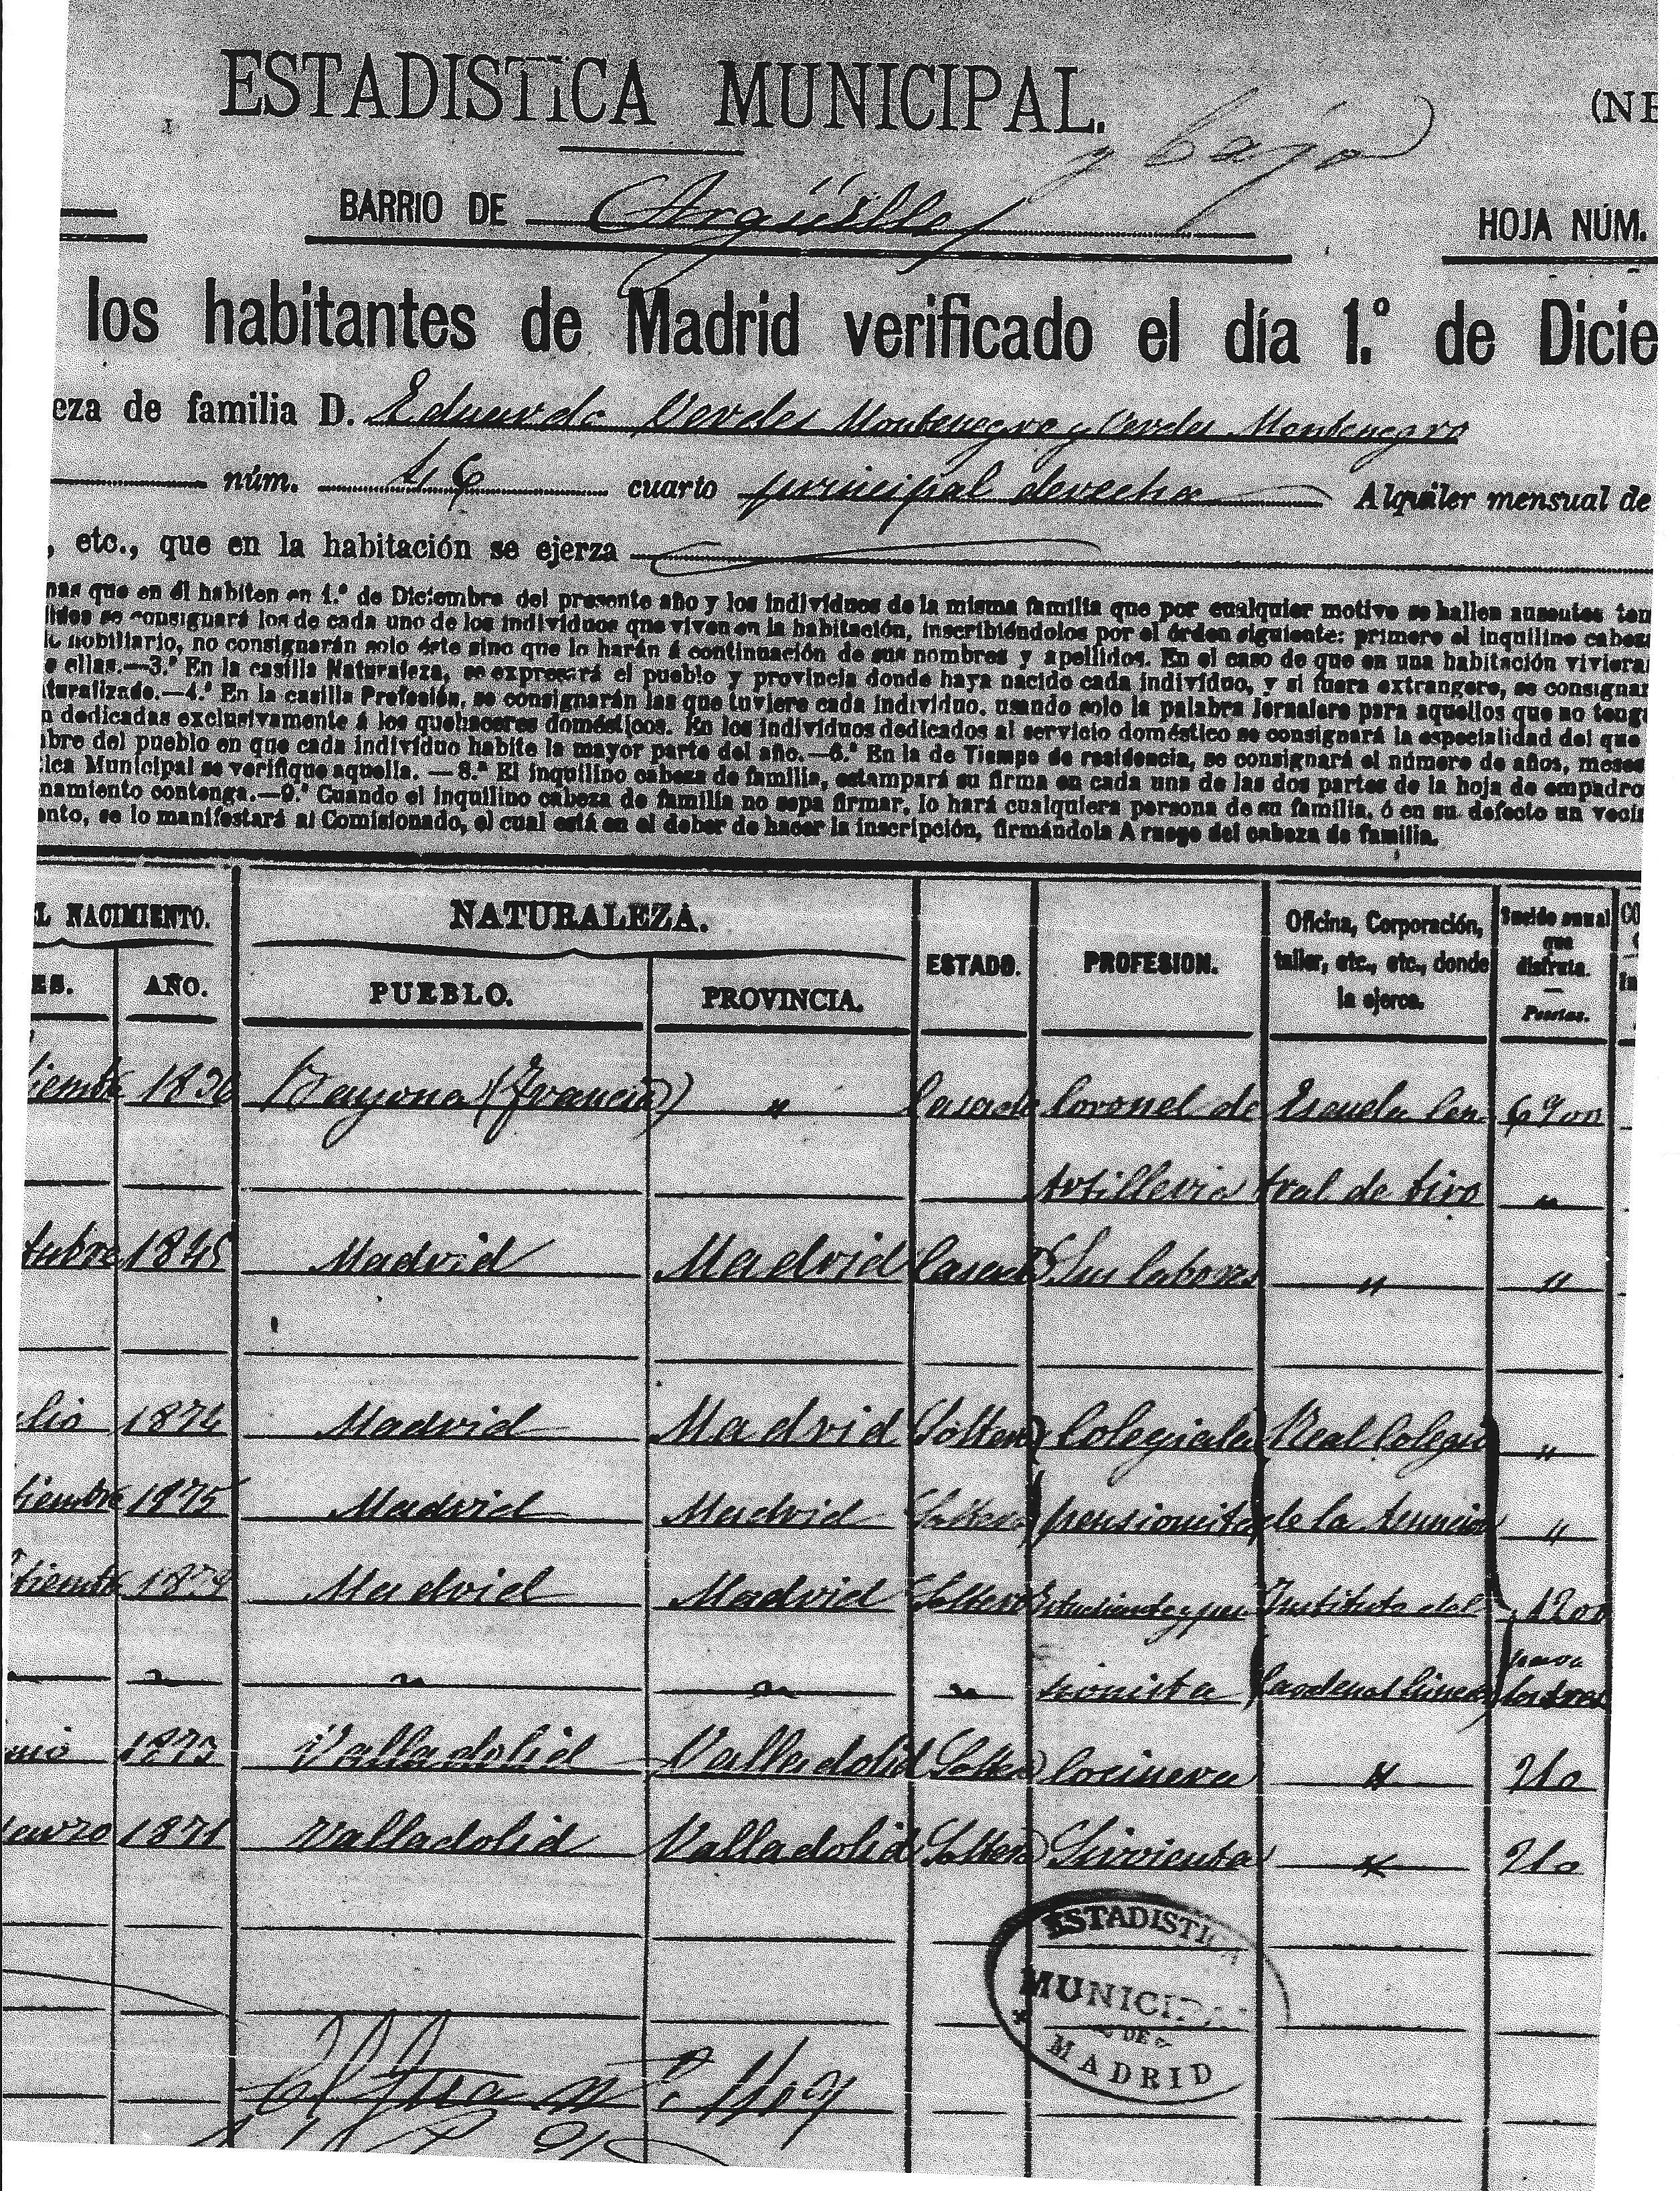 ESTADISTICA MUNICIPAL.
(NE
y bajo
BARRIO DE Argüelles
HOJA NÚM.
los habitantes de Madrid verificado el día 1.º de Dicie
eza de familia D. Eduardo Verdes Montenegro y Verdes Montenegro
núm. 16 cuarto principal derecha Alquiler mensual de
, etc., que en la habitación se ejerza
nas que en él habiten en 1.º de Diciembre del presente año y los individuos de la misma familia que por cualquier motivo se hallen ausentes tem
lidos se consignará los de cada uno de los individuos que viven en la habitación, inscribiéndolos por el órden siguiente: primero el inquilino cabeza
nobiliario, no consignarán solo éste sino que lo harán á continuación de sus nombres y apellidos. En el caso de que en una habitación viviera
e ellas.—3.ª En la casilla Naturaleza, se expresará el pueblo y provincia donde haya nacido cada individuo, y si fuera extrangero, se consignar
turalizado.—4.ª En la casilla Profesión, se consignarán las que tuviere cada individuo. usando solo la palabra Jornalero para aquellos que no tenga
n dedicadas exclusivamente á los quehaceres domésticos. En los individuos dedicados al servicio doméstico se consignará la especialidad del que
bre del pueblo en que cada individuo habite la mayor parte del año.—6.ª En la de Tiempo de residencia, se consignará el número de años, meses
ica Municipal se verifique aquella. — 8.ª El inquilino cabeza de familia, estampará su firma en cada una de las dos partes de la hoja de empadro
namiento contenga.—9.ª Cuando el inquilino cabeza de familia no sepa firmar, lo hará cualquiera persona de su familia, ó en su defecto un vecin
ento, se lo manifestará al Comisionado, el cual está en el deber de hacer la inscripción, firmándola A ruego del cabeza de familia.
L NACIMIENTO. NATURALEZA. ESTADO. PROFESION. Oficina, Corporación, taller, etc., etc., donde la ejerza. Sueldo anual que disfruta. — Pesetas.
ES. AÑO. PUEBLO. PROVINCIA.
tiembre 1836 Bayona (Francia) " Casado Coronel de Escuela Cen- 6900
Artilleria tral de tiro "
tubre 1845 Madrid Madrid Casada Sus labores " "
ulio 1874 Madrid Madrid Soltera Colegiala Real Colegio "
tiembre 1875 Madrid Madrid Soltera pensionista de la Asuncion "
tiembre 1879 Madrid Madrid Soltero Estudiante y pen Instituto del 1200
" " " " sionista Cardenal Cisneros para los tres
nio 1873 Valladolid Valladolid Soltera Cocinera " 210
1871 Valladolid Valladolid Soltera Sirvienta " 210
ESTADISTICA
MUNICIPAL
DE
MADRID